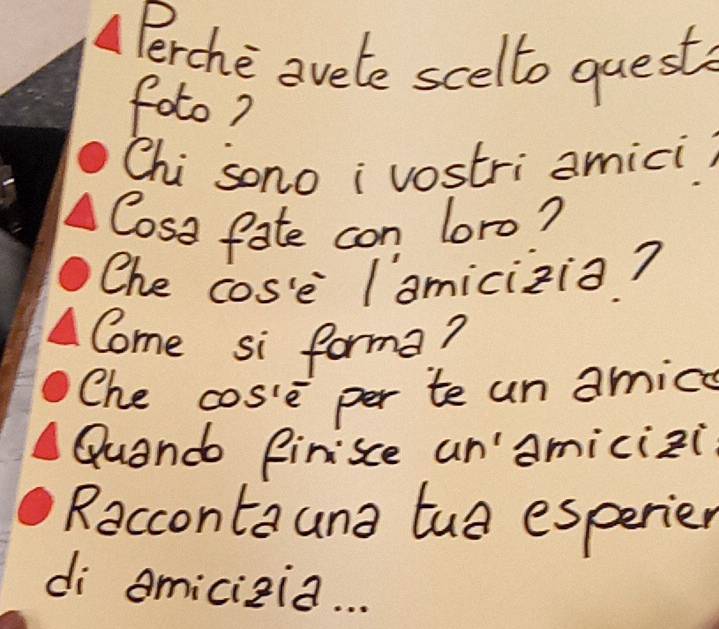 Perchè avete scelto questa
foto?
Chi sono i vostri amici?
Cosa fate con loro?
Che cos'è l'amicizia?
Come si forma?
Che cos'è per te un amico
Quando finisce un'amicizi
Racconta una tua esperien
di amicizia...